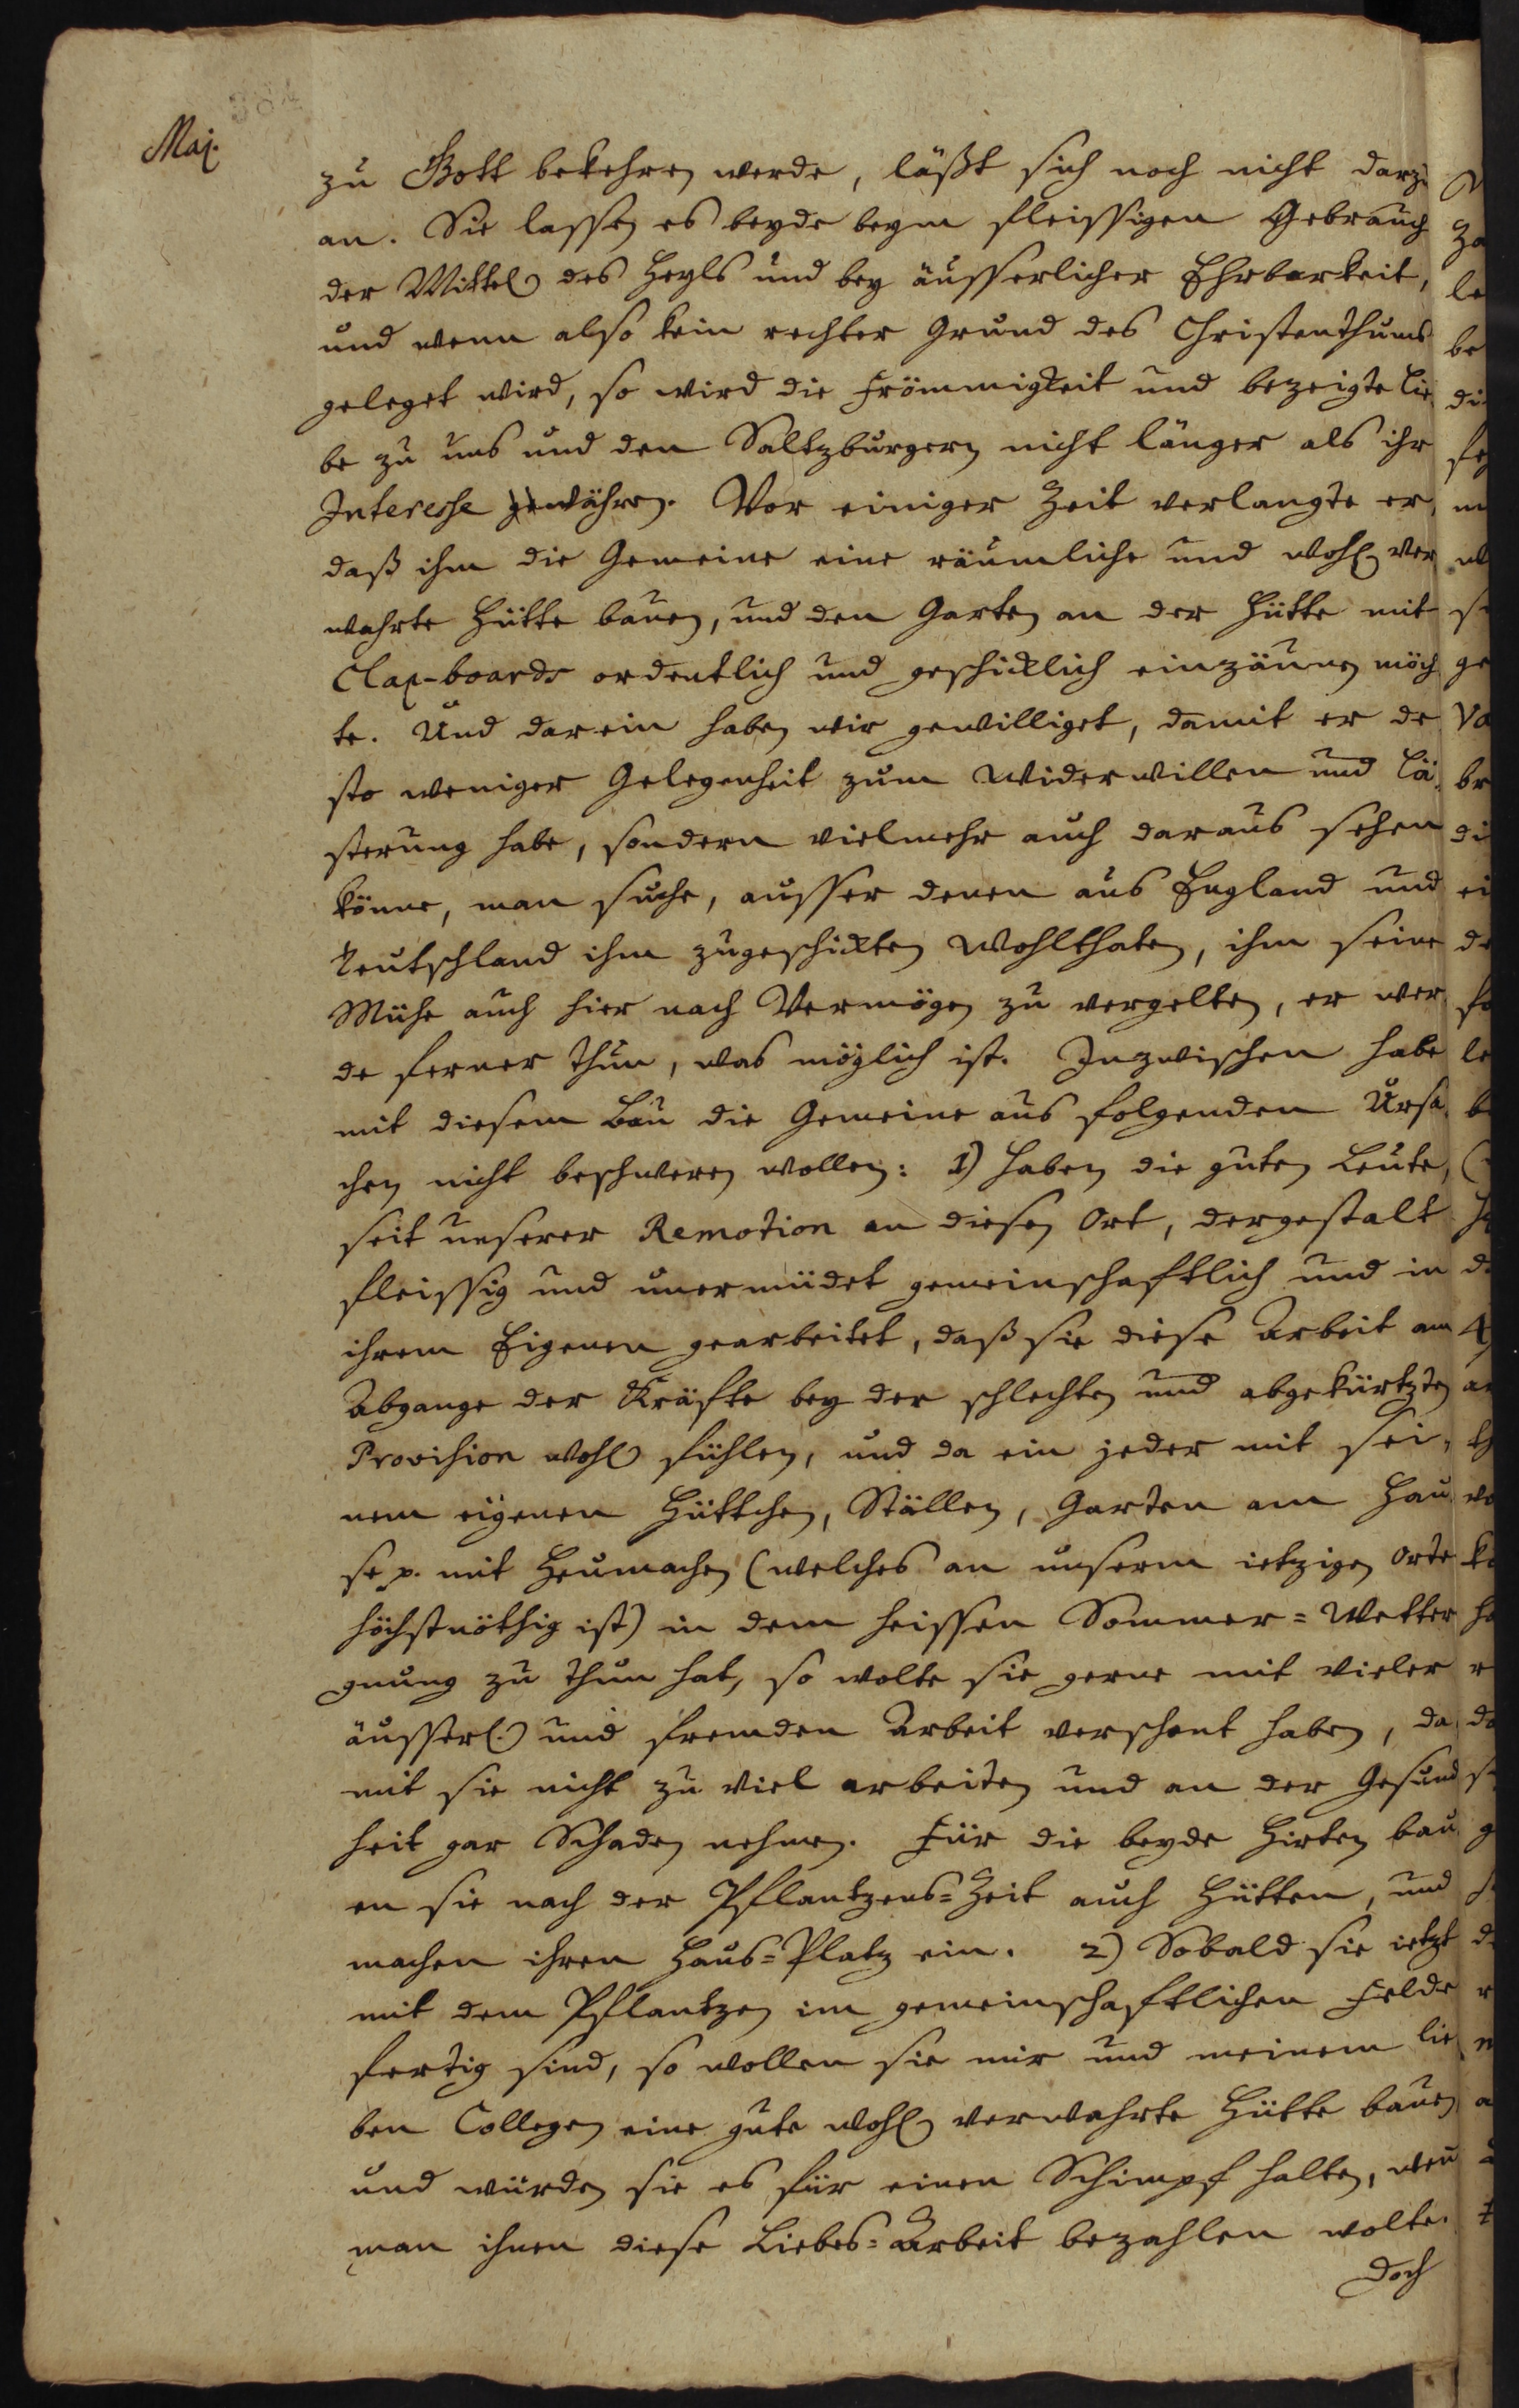 384
Maj.
zu Gott bekehren werde, läßt sich noch nicht darzu
an. Sie lassen es beyde beym fleissigen Gebrauch
der Mittel des Heyls und bey äusserlicher Ehrbarkeit,
und wenn also kein rechter Grund des Christenthums
geleget wird, so wird die Frömmigkeit und bezeigte Lie-
be zu uns und den Saltzburgern nicht länger als ihr
Interesse währen. Vor einiger Zeit verlangte er,
daß ihm die Gemeine eine räumliche und wohl ver
wahrte Hütte bauen, und den Garten an der Hütte mit
Clap-boards ordentlich und geschicklich einzäunen möch
te. Und darein haben wir gewilliget, damit er de
sto weniger Gelegenheit zum Widerwillen und Lä-
sterung habe, sondern vielmehr auch daraus sehen
könne, man suche, ausser denen aus England und
Teutschland ihm zugeschickten Wohlthaten, ihm seine
Mühe auch hier nach Vermögen zu vergelten, er wer
de ferner thun, was möglich ist. Inzwischen habe
mit diesem Bau die Gemeine aus folgenden Ursa-
chen nicht beschweren wollen: 1) haben die guten Leute,
seit unserer Remotion an diesen Ort, dergestalt
fleissig und unermüdet gemeinschaftlich und in
ihrem Eigenen gearbeitet, daß sie diese Arbeit am
Abgange der Kräfte bey der schlechten und abgekürtzten
Provision wohl fühlen, und da ein jeder mit sei-
nem eigenen Hüttchen, Ställen, Garten am Hau
se p. mit Heumachen (welches an unserm ietzigen Orte
höchstnöthig ist) in dem heissen Sommer=Wetter
gnung zu thun hat, so wolte sie gerne mit vieler
äusserl. und fremden Arbeit verschont haben, da
mit sie nicht zu viel arbeiten und an der Gesund
heit gar Schaden nehmen. Für die beyde Hirten bau
en sie nach der Pflantzens=Zeit auch Hütten, und
machen ihren Haus=Platz ein. 2) Sobald sie ietzt
mit dem Pflantzen im gemeinschaftlichen Felde
fertig sind, so wollen sie mir und meinem lie
ben Collegen eine gute wohl verwahrte Hütte bauen
und würden sie es für einen Schimpf halten, wen̄
man ihnen diese Liebes=Arbeit bezahlen wolte.
Doch